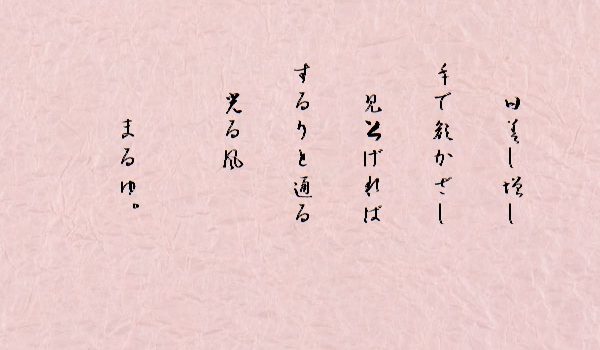 日差し増し
手で顔かざし
見上げれば
するりと通る
光る風
まるゆ。